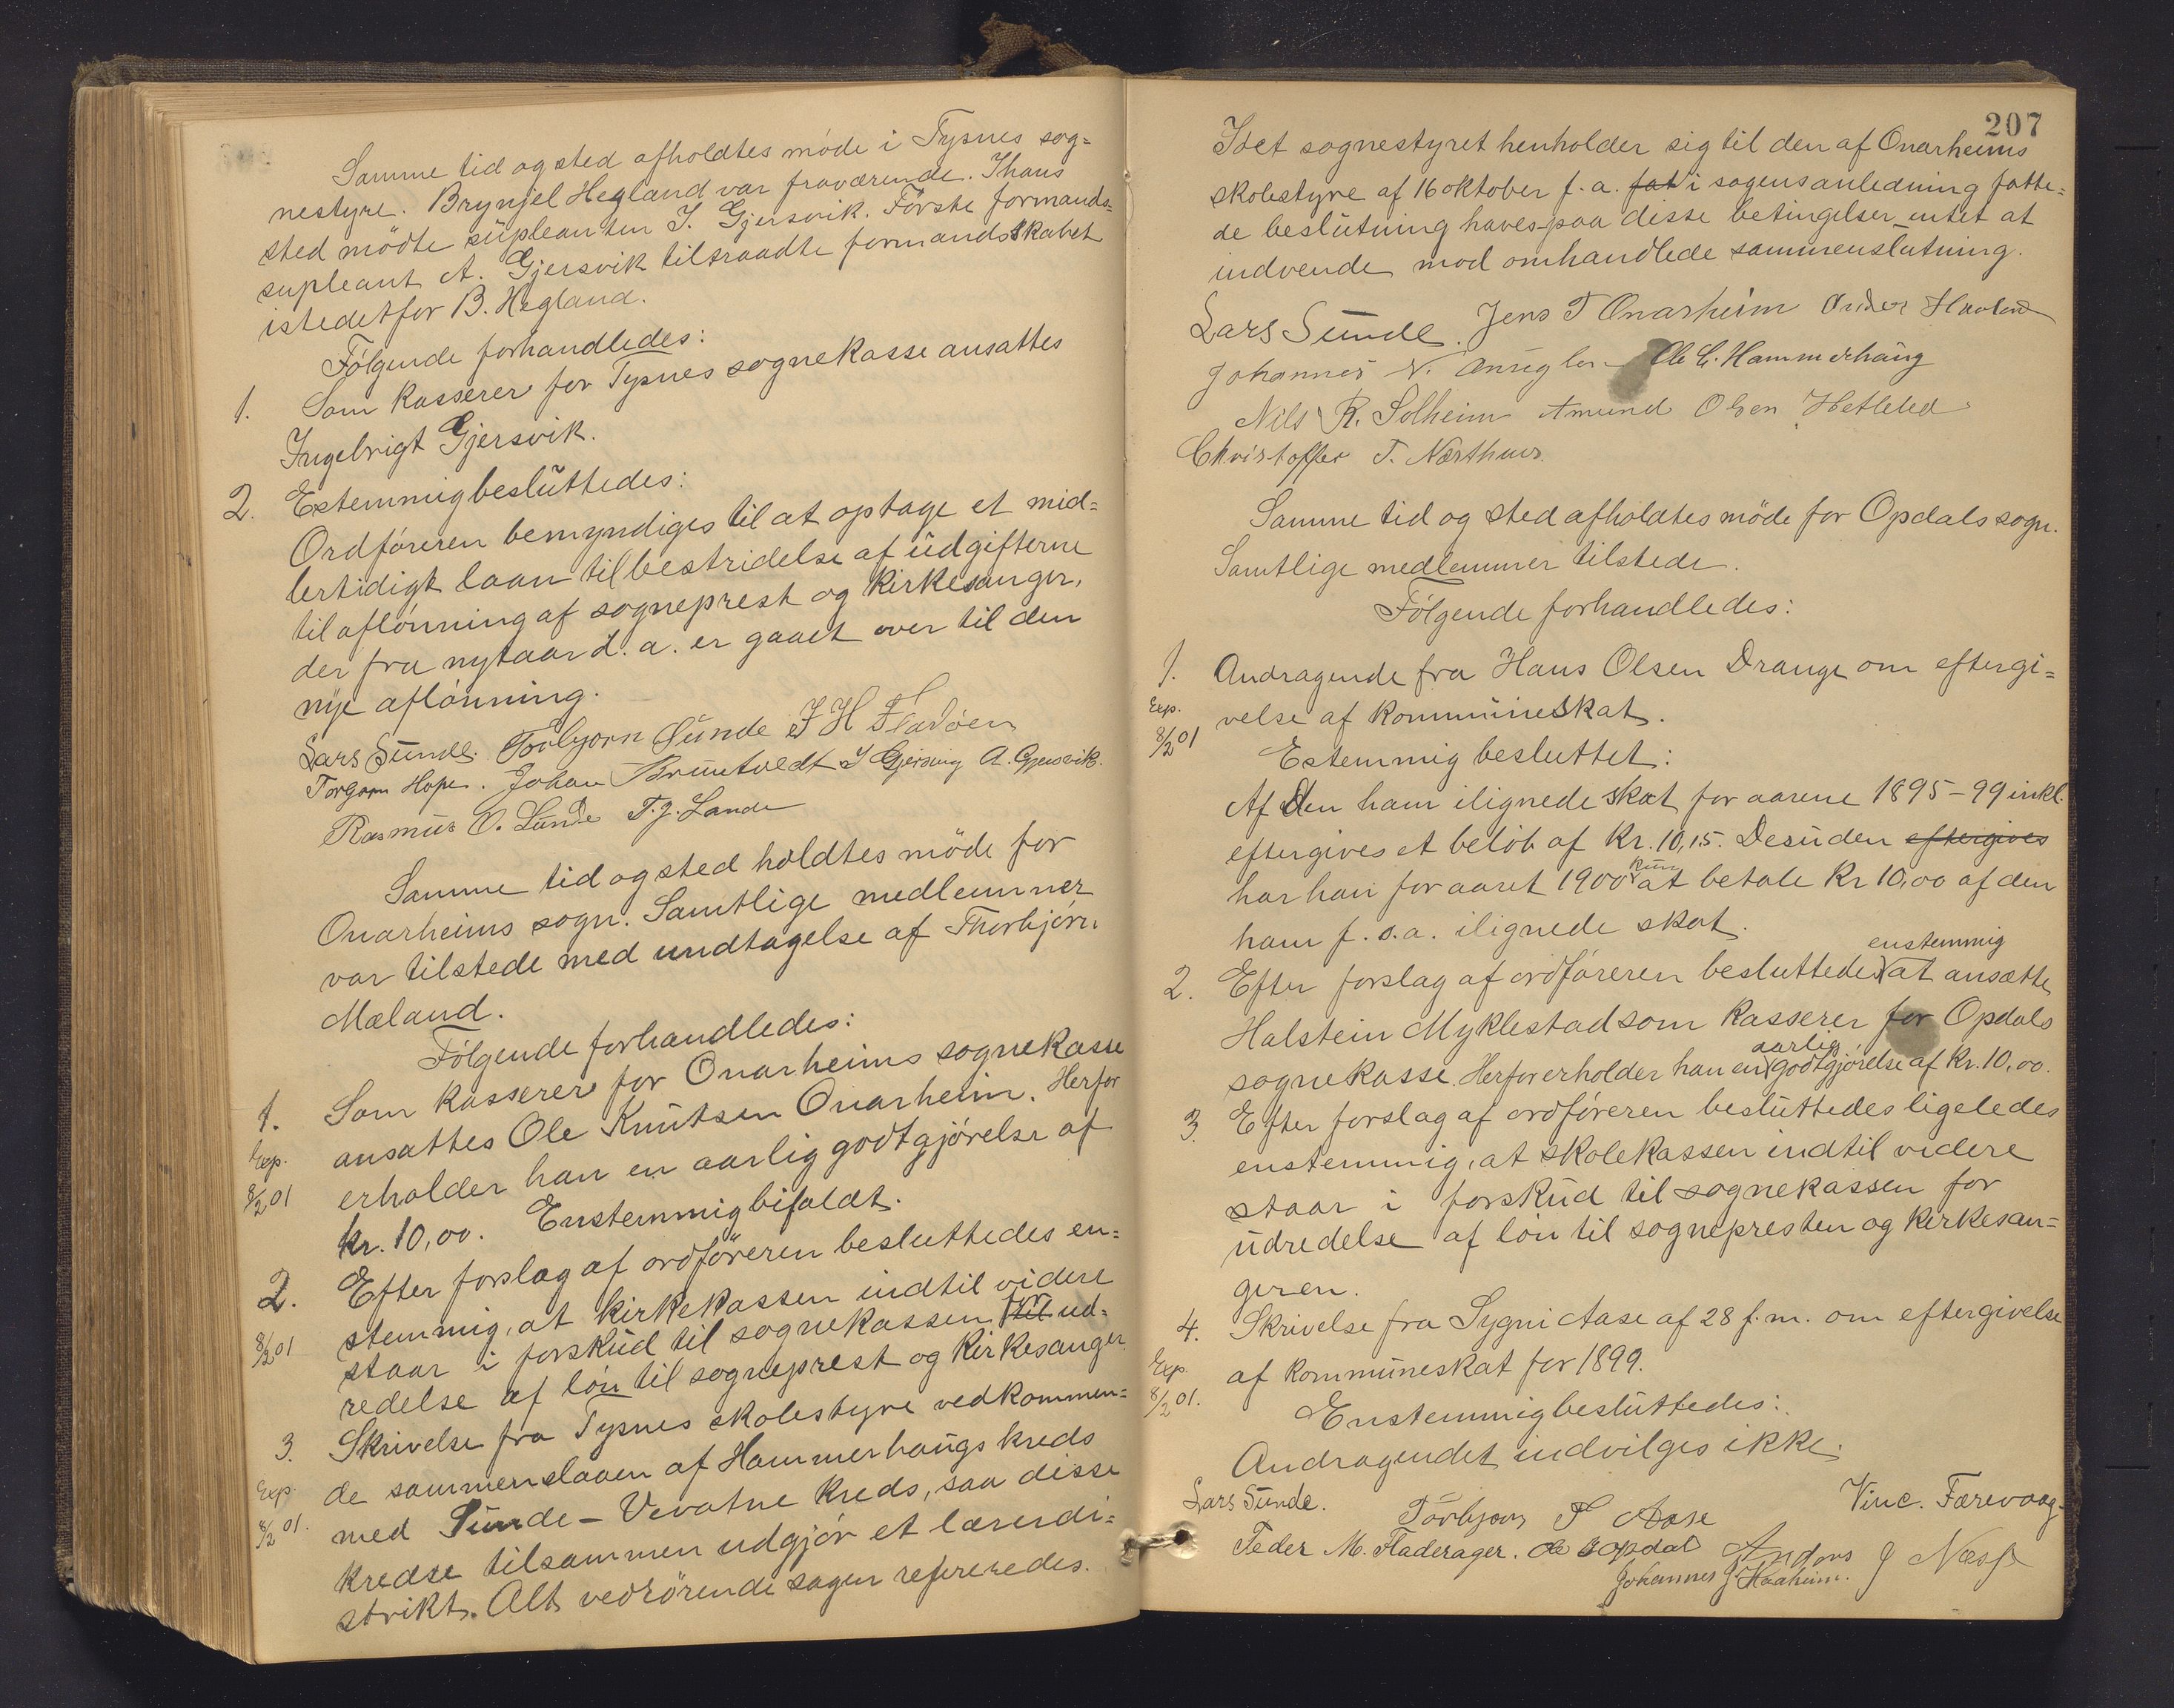 Samme tid og sted afholdtes møde i Tysnes sog=
nestyre. Brynjel Hegland var fraværende. I hans
sted mödte süpleanten I. Gjersvik. Første formands=
supleant A. Gjersvik tiltraadte formandsskabet
istedetfor B. Hegland.
Følgende forhandledes:
1. Som kasserer for Tysnes sognekasse ansattes
Ingebrigt Gjersvik.
2. Estemmig beslüttedes:
Ordføreren bemyndiges til at optage et mid=
lertidigt laan til bestridelse af üdgifterne
til aflønning af sogneprest og kirkesanger,
der fra nytaar d. a. er gaaet over til den
nye aflønning.
Lars Sunde. Torbjorn Sunde J H Fladøen
Torgorn Hope. Johan Bruntvedt I Gjersvig A. Gjersvik.
Rasmus O. Lunde T. J. Lande
Samme tid og sted holdtes møde for
Onarheims sogn. Samtlige medlemmer
var tilstede med undtagelse af Thorbjørn
Mæland.
Følgende forhandledes:
1. Som kasserer for Onarheims sognekasse
ansattes Ole Knutsen Onarheim. Herfor
Exp.
erholder han en aarlig godtgjørelse af
8/2 01
kr. 10,00. Enstemmig bifaldt.
2. Efter forslag af ordføreren besluttedes en=
stemmig, at kirkekassen indtil videre
8/2 01
staar i forskud til sognekassen for til ud=
redelse af løn til sogneprest og kirkesanger.
3. Skrivelse fra Tysnes skolestyre vedkommen=
de sammenslaaen af Hammerhaugs kreds
Exp.
med Sunde - Vevatne kreds, saa disse
8/2 01.
kredse tilsammen udgjør et lærerdi=
strikt. Alt vedrörende sagen refereredes.
207
Idet sognestyret henholder sig til den af Onarheims
skolestyre af 16 oktober f. a. fat i sagens anledning fatte=
de beslutning haves paa disse betingelser intet at
indvende mod omhandlede sammenslutning.
Lars Sunde. Jens T Onarheim
Johannes N. Ole L. Hammerhaug
Nils R. Solheim Amund Olsen Hetleled
Christoffer T. Næsthuus.
Samme tid og sted afholdtes möde for Opdals sogn.
Samtlige medlemmer tilstede.
Følgende forhandledes:
1. Andragende fra Hans Olsen Drange om eftergi=
Exp.
velse af kommuneskat.
8/2 01
Estemmig besluttet:
Af den ham ilignede skat for aarene 1895 - 99 inkl.
eftergives et beløb af kr. 10,15. Desuden eftergives
har han for aaret 1900 kun at betale kr 10,00 af den
ham f. s. a. ilignede skat.
2. Efter forslag af ordføreren besluttedes enstemmig at ansætte
Halstein Myklestad som kasserer for Opdals
sognekasse. Herfor erholder han en aarlig godtgjørelse af kr. 10,00.
3. Efter forslag af ordføreren besluttedes ligeledes
enstemmig, at skolekassen indtil videre
staar i forskud til sognekassen for
üdredelse af løn til sognepresten og kirkesan=
geren.
4. Skrivelse fra Sygni Aase af 28 f. m. om eftergivelse
Exp.
af kommuneskat for 1899.
8/2 01.
Enstemmig besluttedes:
Andragendet indvilges ikke.
Lars Sunde. Torbjorn T Aase Vinc. Færevaag
Peder M. Fladerager. Ole Opdal Anders J Næss
Johannes J. Haaheim.